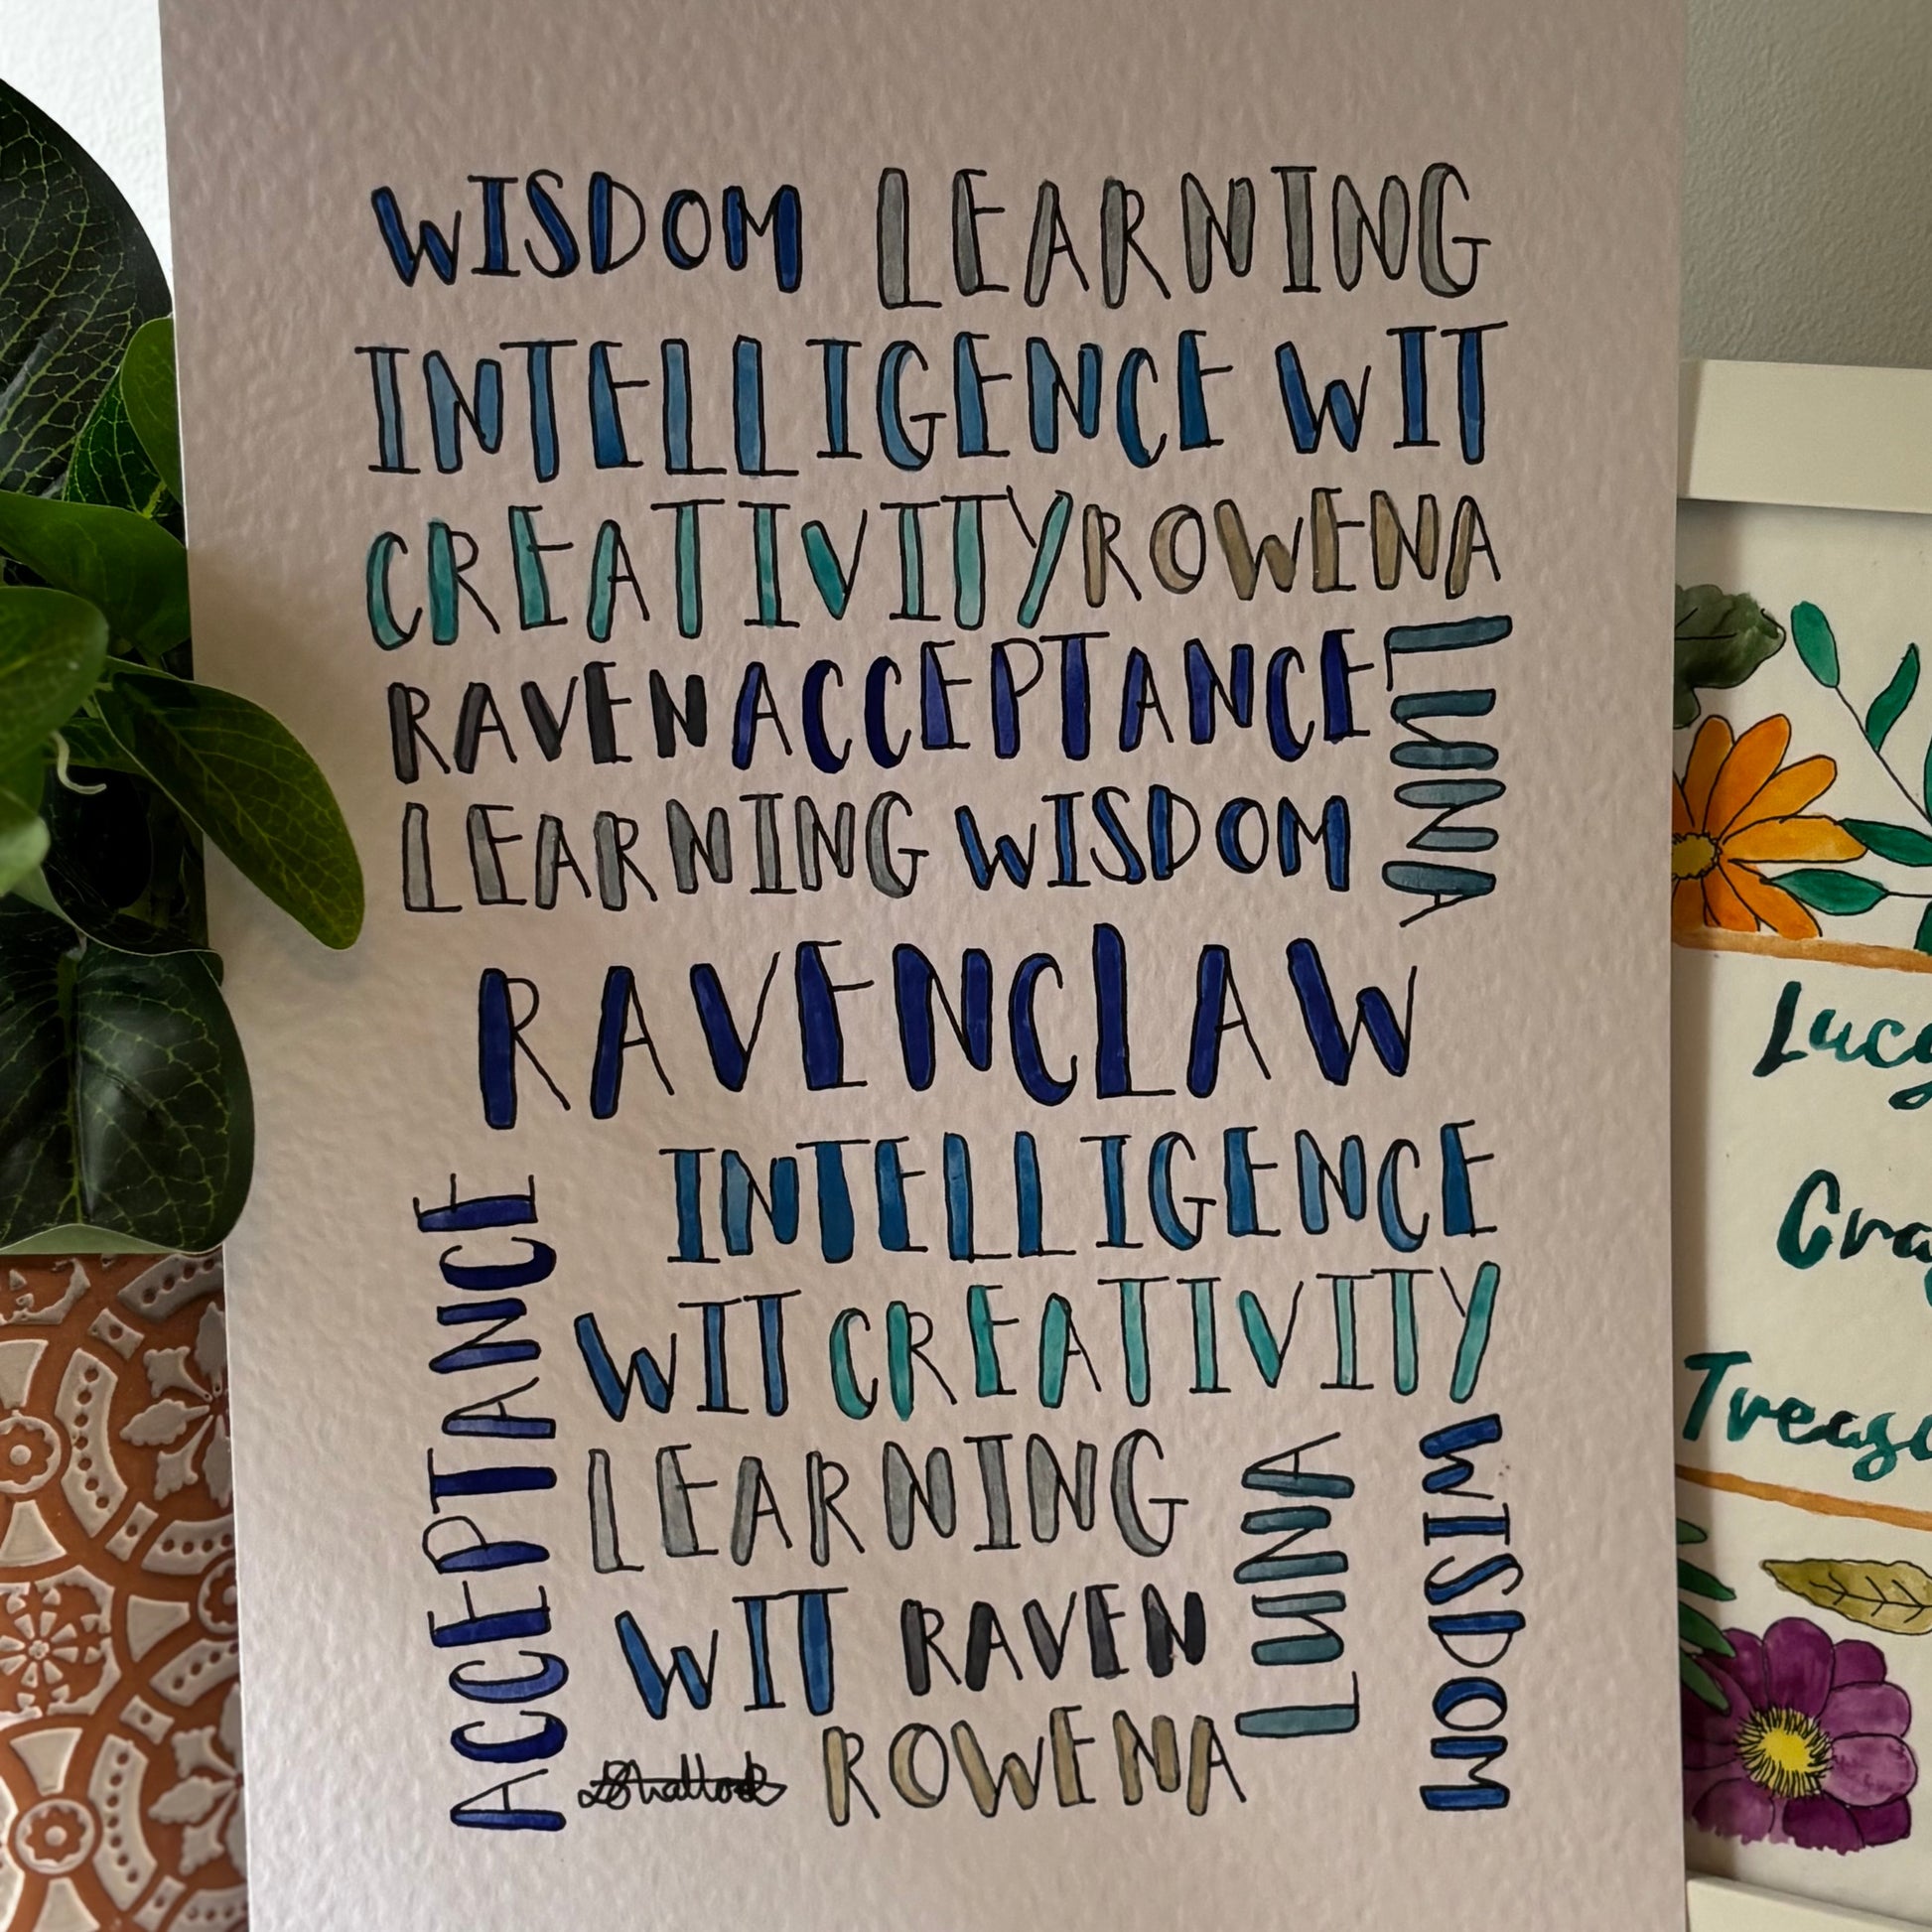 WISDOM LEARNING
INTELLIGENCE WIT
CREATIVITY ROWENA
RAVEN ACCEPTANCE
LUNA
LEARNING WISDOM
RAVENCLAW
INTELLIGENCE
ACCEPTANCE
WIT CREATIVITY
LEARNING
LUNA
WISDOM
WIT RAVEN
ROWENA